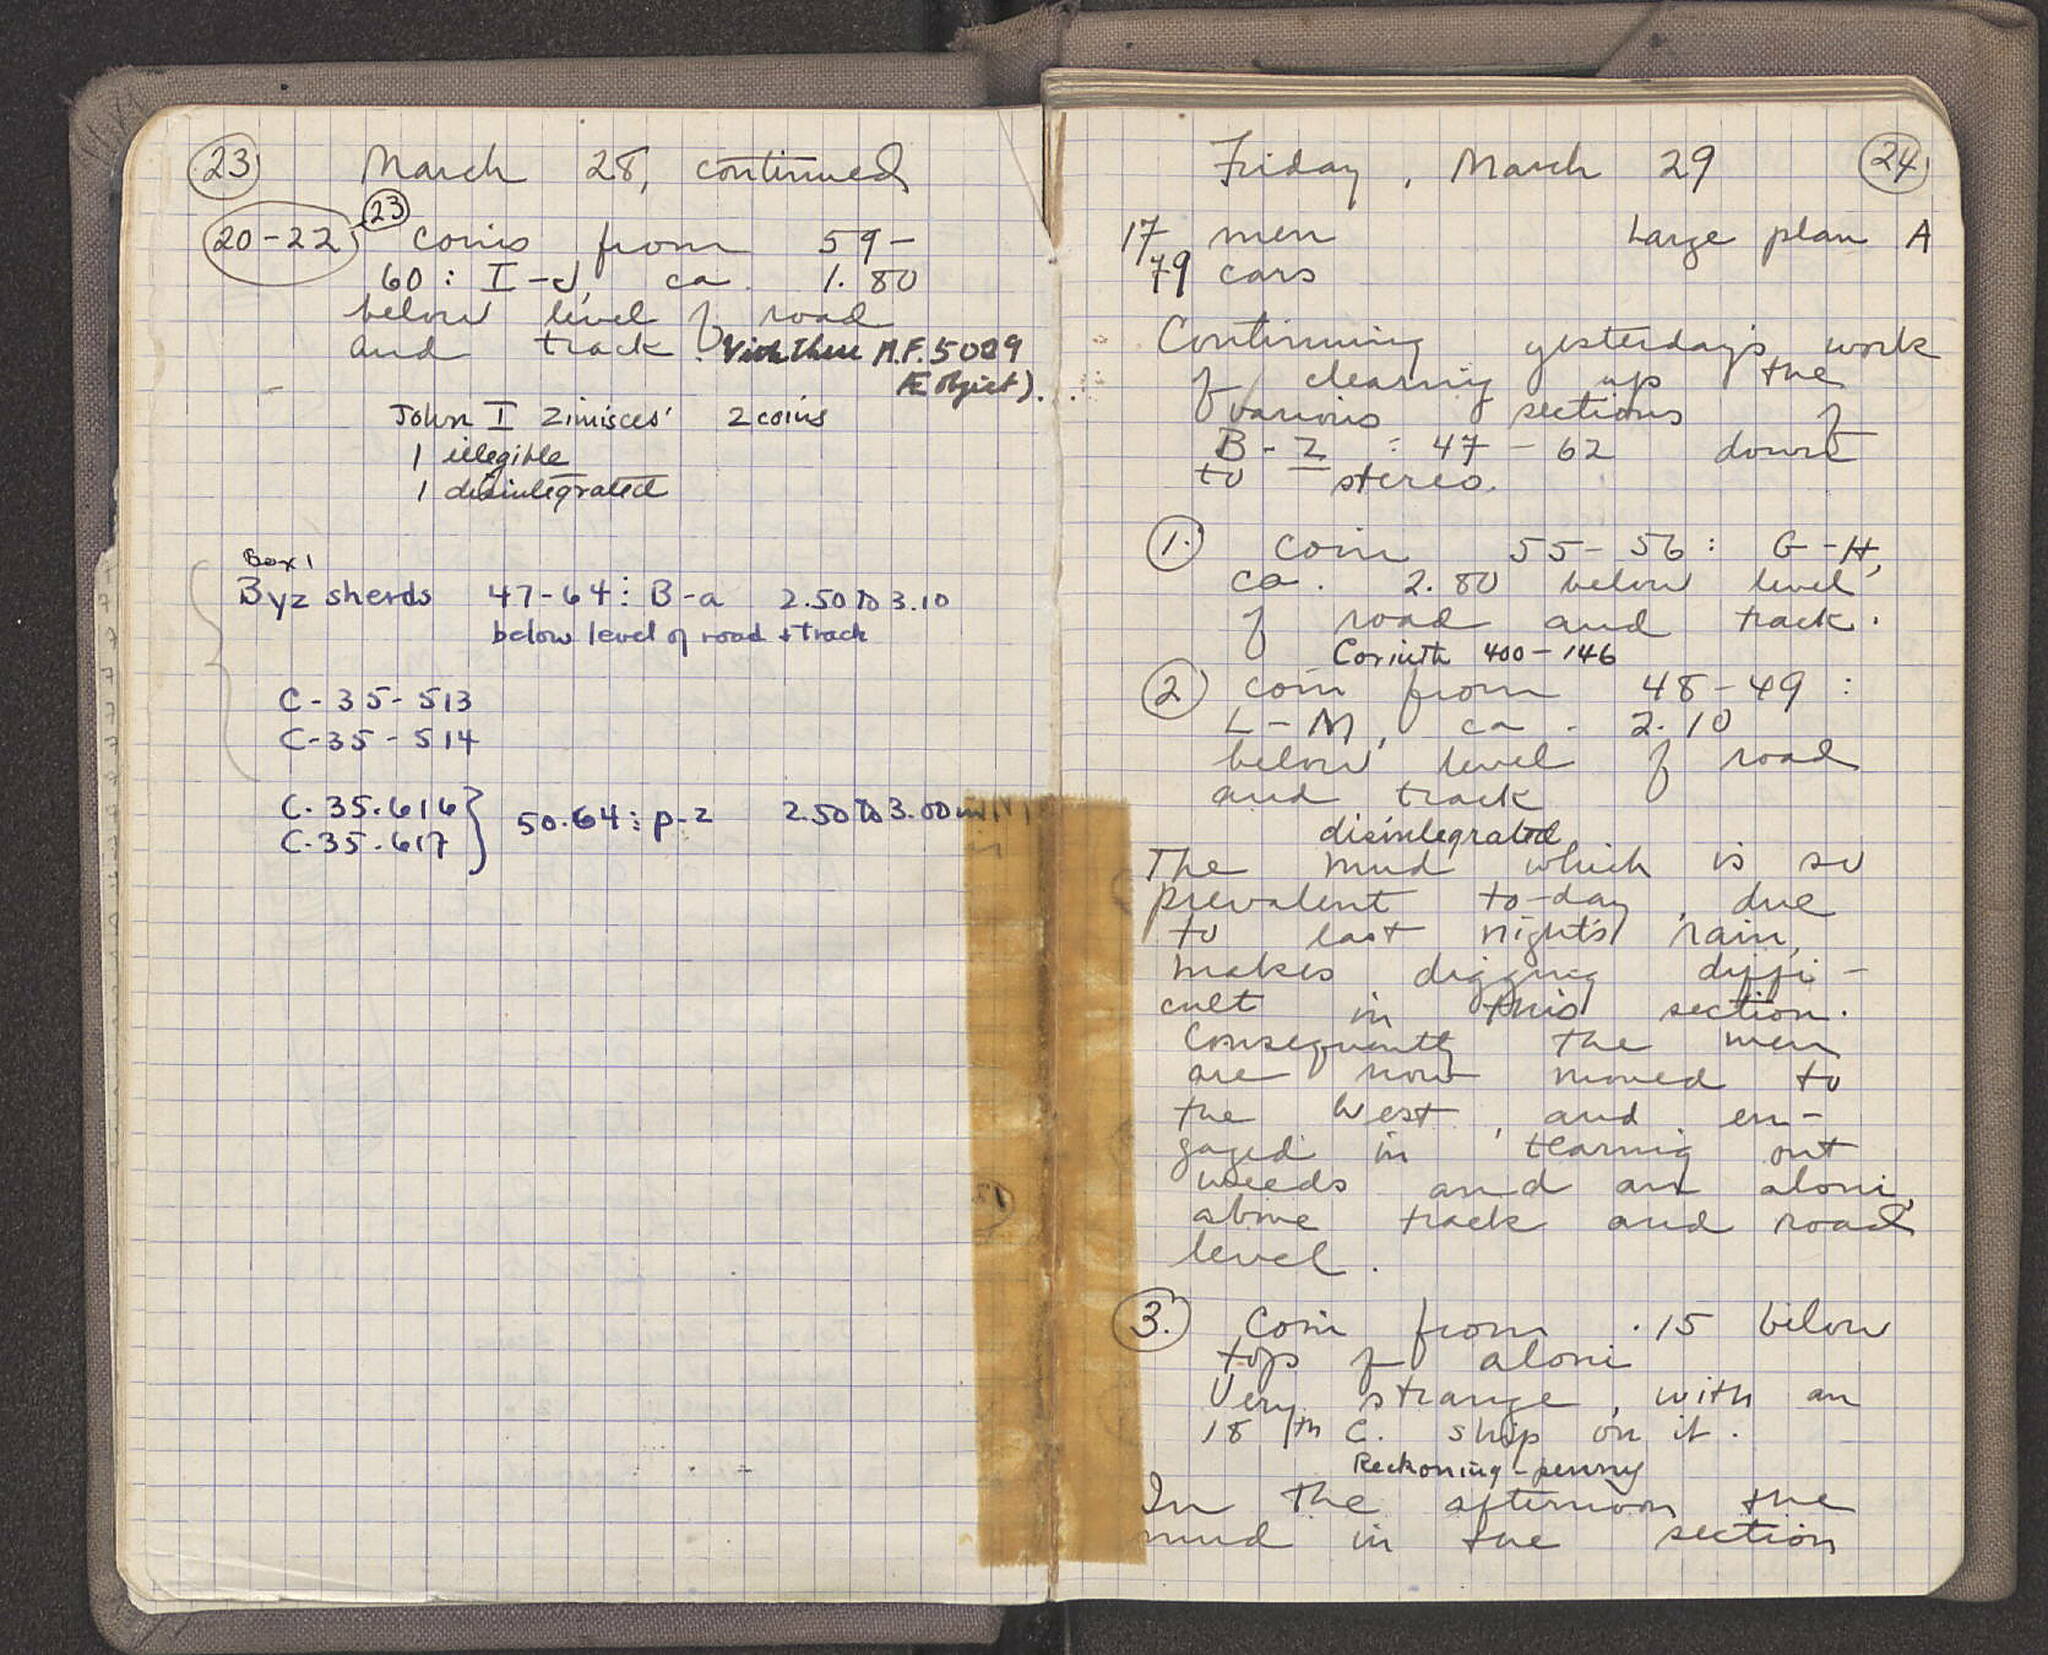 23 March 28, continued
20-22, 23 coins from 59-
60 : I-J, ca. 1.80
below level of road
and track. With these M.F. 5029
Æ object).
John I Zimisces' 2 coins
1 illegible
1 disintegrated
Box 1
Byz sherds 47-64 : B-a 2.50 to 3.10
below level of road + track
C-35-513
C-35-514
C.35.616
C.35.617 } 50.64 : p-z 2.50 to 3.00 m
Friday, March 29 24
17 men Large plan A
79 cars
Continuing yesterday's work
of clearing up the
various sections of
B-Z : 47-62 down
to stereo.
1. Coin 55-56 : G-H,
ca. 2.80 below level
of road and track.
Corinth 400-146
2 coin from 48-49 :
L-M, ca. 2.10
below level of road
and track
disintegrated
The mud which is so
prevalent to-day, due
to last night's rain,
makes digging diffi-
cult in this section.
Consequently the men
are now moved to
the West, and en-
gaged in clearing out
weeds and an aloni,
above track and road
level.
3. Coin from .15 below
tops of aloni
Very strange, with an
18th C. ship on it.
Reckoning-penny
In the afternoon the
mud in the section